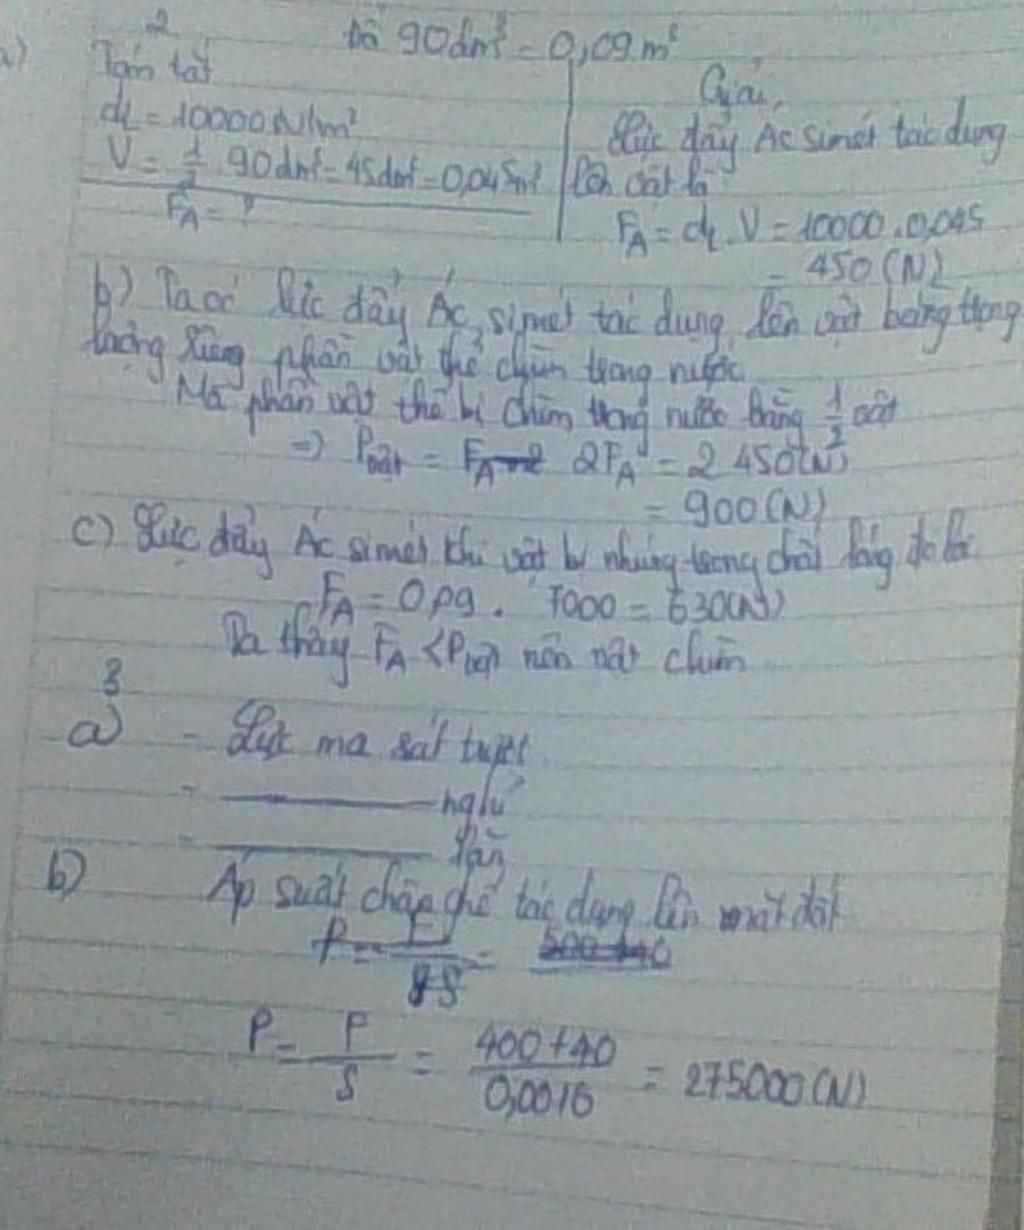 2
Đổi 90dm³ = 0,09m³
a)
Tóm tắt
dl = 10000N/m³
V = 1/2 . 90dm³ = 45dm³ = 0,045m³
FA = ?
Giải
Lực đẩy Ác simét tác dụng
lên vật là
FA = dl . V = 10000 . 0,045
= 450 (N)
b) Ta có lực đẩy Ác simét tác dụng lên vật bằng trọng
lượng riêng phần vật thể chìm trong nước
Mà phần vật thể bị chìm trong nước bằng 1/2 vật
=> Pvật = FA 2FA = 2 450(N)
= 900 (N)
c) Lực đẩy Ác simét khi vật bị nhúng trong chất lỏng đó là
FA = 0,09 . 7000 = 630(N)
Ta thấy FA < Pvật nên vật chìm
3
a) - Lực ma sát trượt
- ——— nghỉ
- ——— lăn
b) Áp suất chân ghế tác dụng lên mặt đất
P = F/S =
P = P/S = 400+40/0,0016 = 275000 (N)